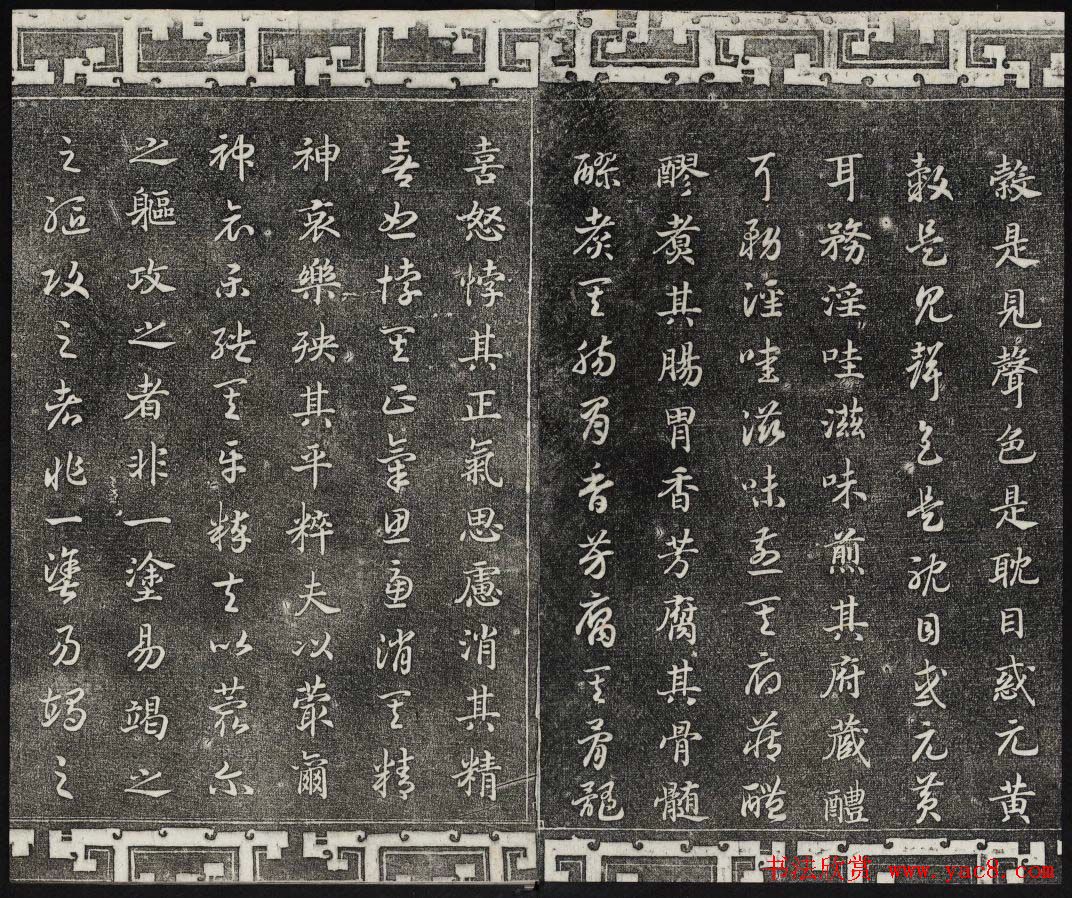 穀是見聲色是耽目惑元黃
穀是見聲色是耽目惑元黃
耳務淫哇滋味煎其府藏醴
耳務淫哇滋味煎其府藏醴
醪煑其腸胃香芳腐其骨髓
醪煑其腸胃香芳腐其骨髓
喜怒悖其正氣思慮消其精
喜怒悖其正氣思慮消其精
神哀樂殃其平粹夫以蕞爾
神哀樂殃其平粹夫以蕞爾
之軀攻之者非一塗易竭之
之軀攻之者非一塗易竭之
书法欣赏 www.yac8.com